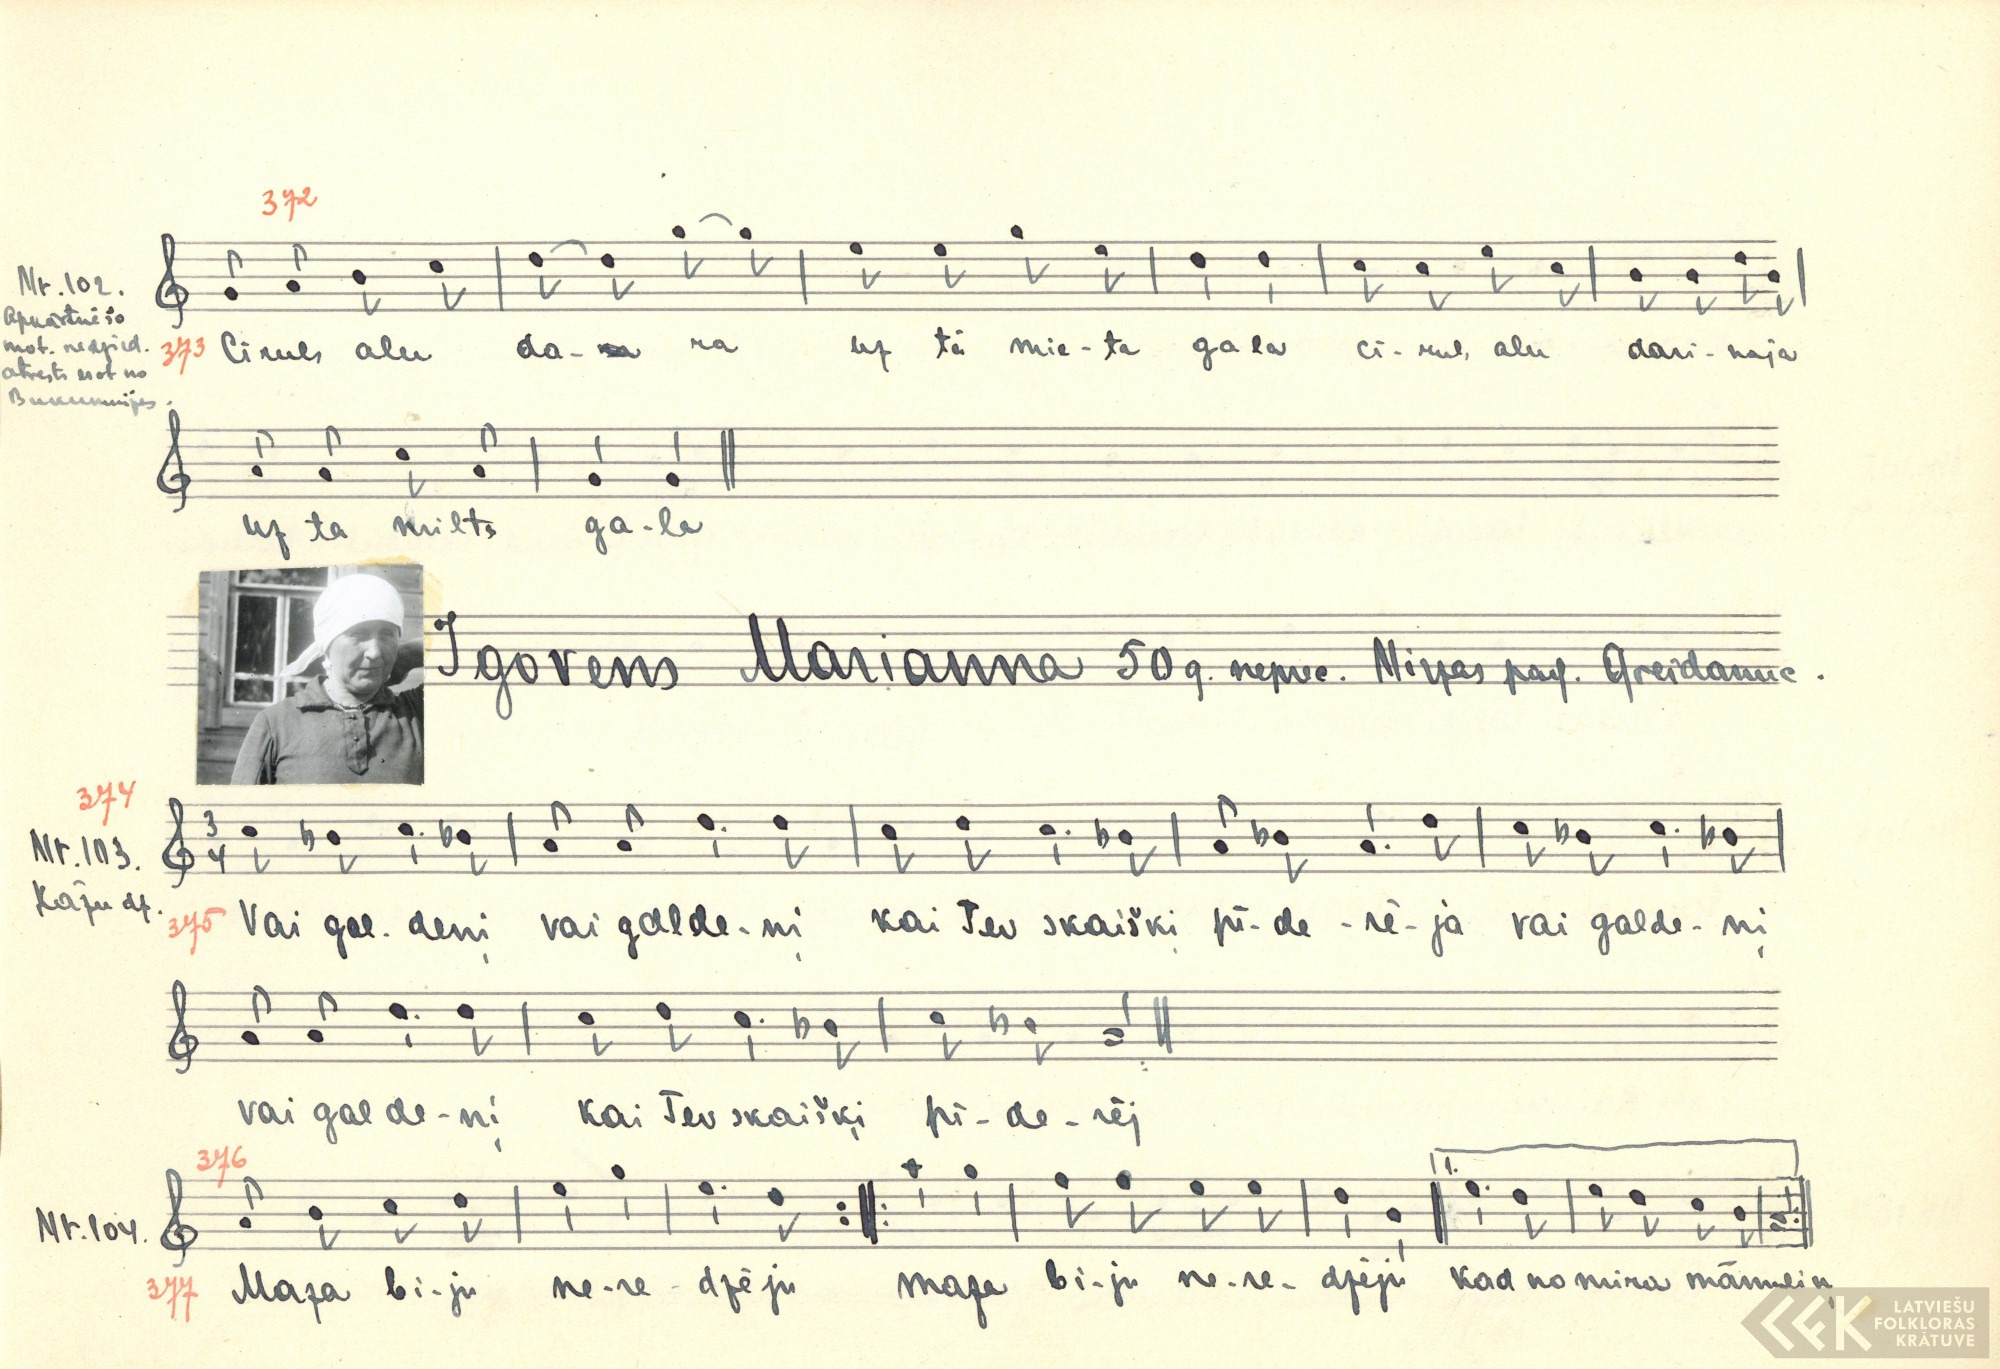 372
Nr. 102.
Apkārtnē šo
mot. nedzied.
atvests esot no
Bukumuižas.
373 Cīruls alu da- ra uz tā mie-ta gala cī-rul, alu dari-naja
uz ta milts ga-la
Igovens Marianna 50 g. neprec. Mirpes pag. Greidanuc.
374
Nr. 103.
Kāzu dz.
375 Vai gal-deņi vai galde-ņi kai Tev skaiški pī-de-rē-ja vai galde-ņi
vai galde-ņi kai Tev skaišķi pī-de-rēj
376
1.
Nr. 104.
377 Maza bi-ju ne-re-dzēju maza bi-ju ne-re-dzēju kad nomira māmuliņ
LATVIEŠU
FOLKLORAS
KRĀTUVE